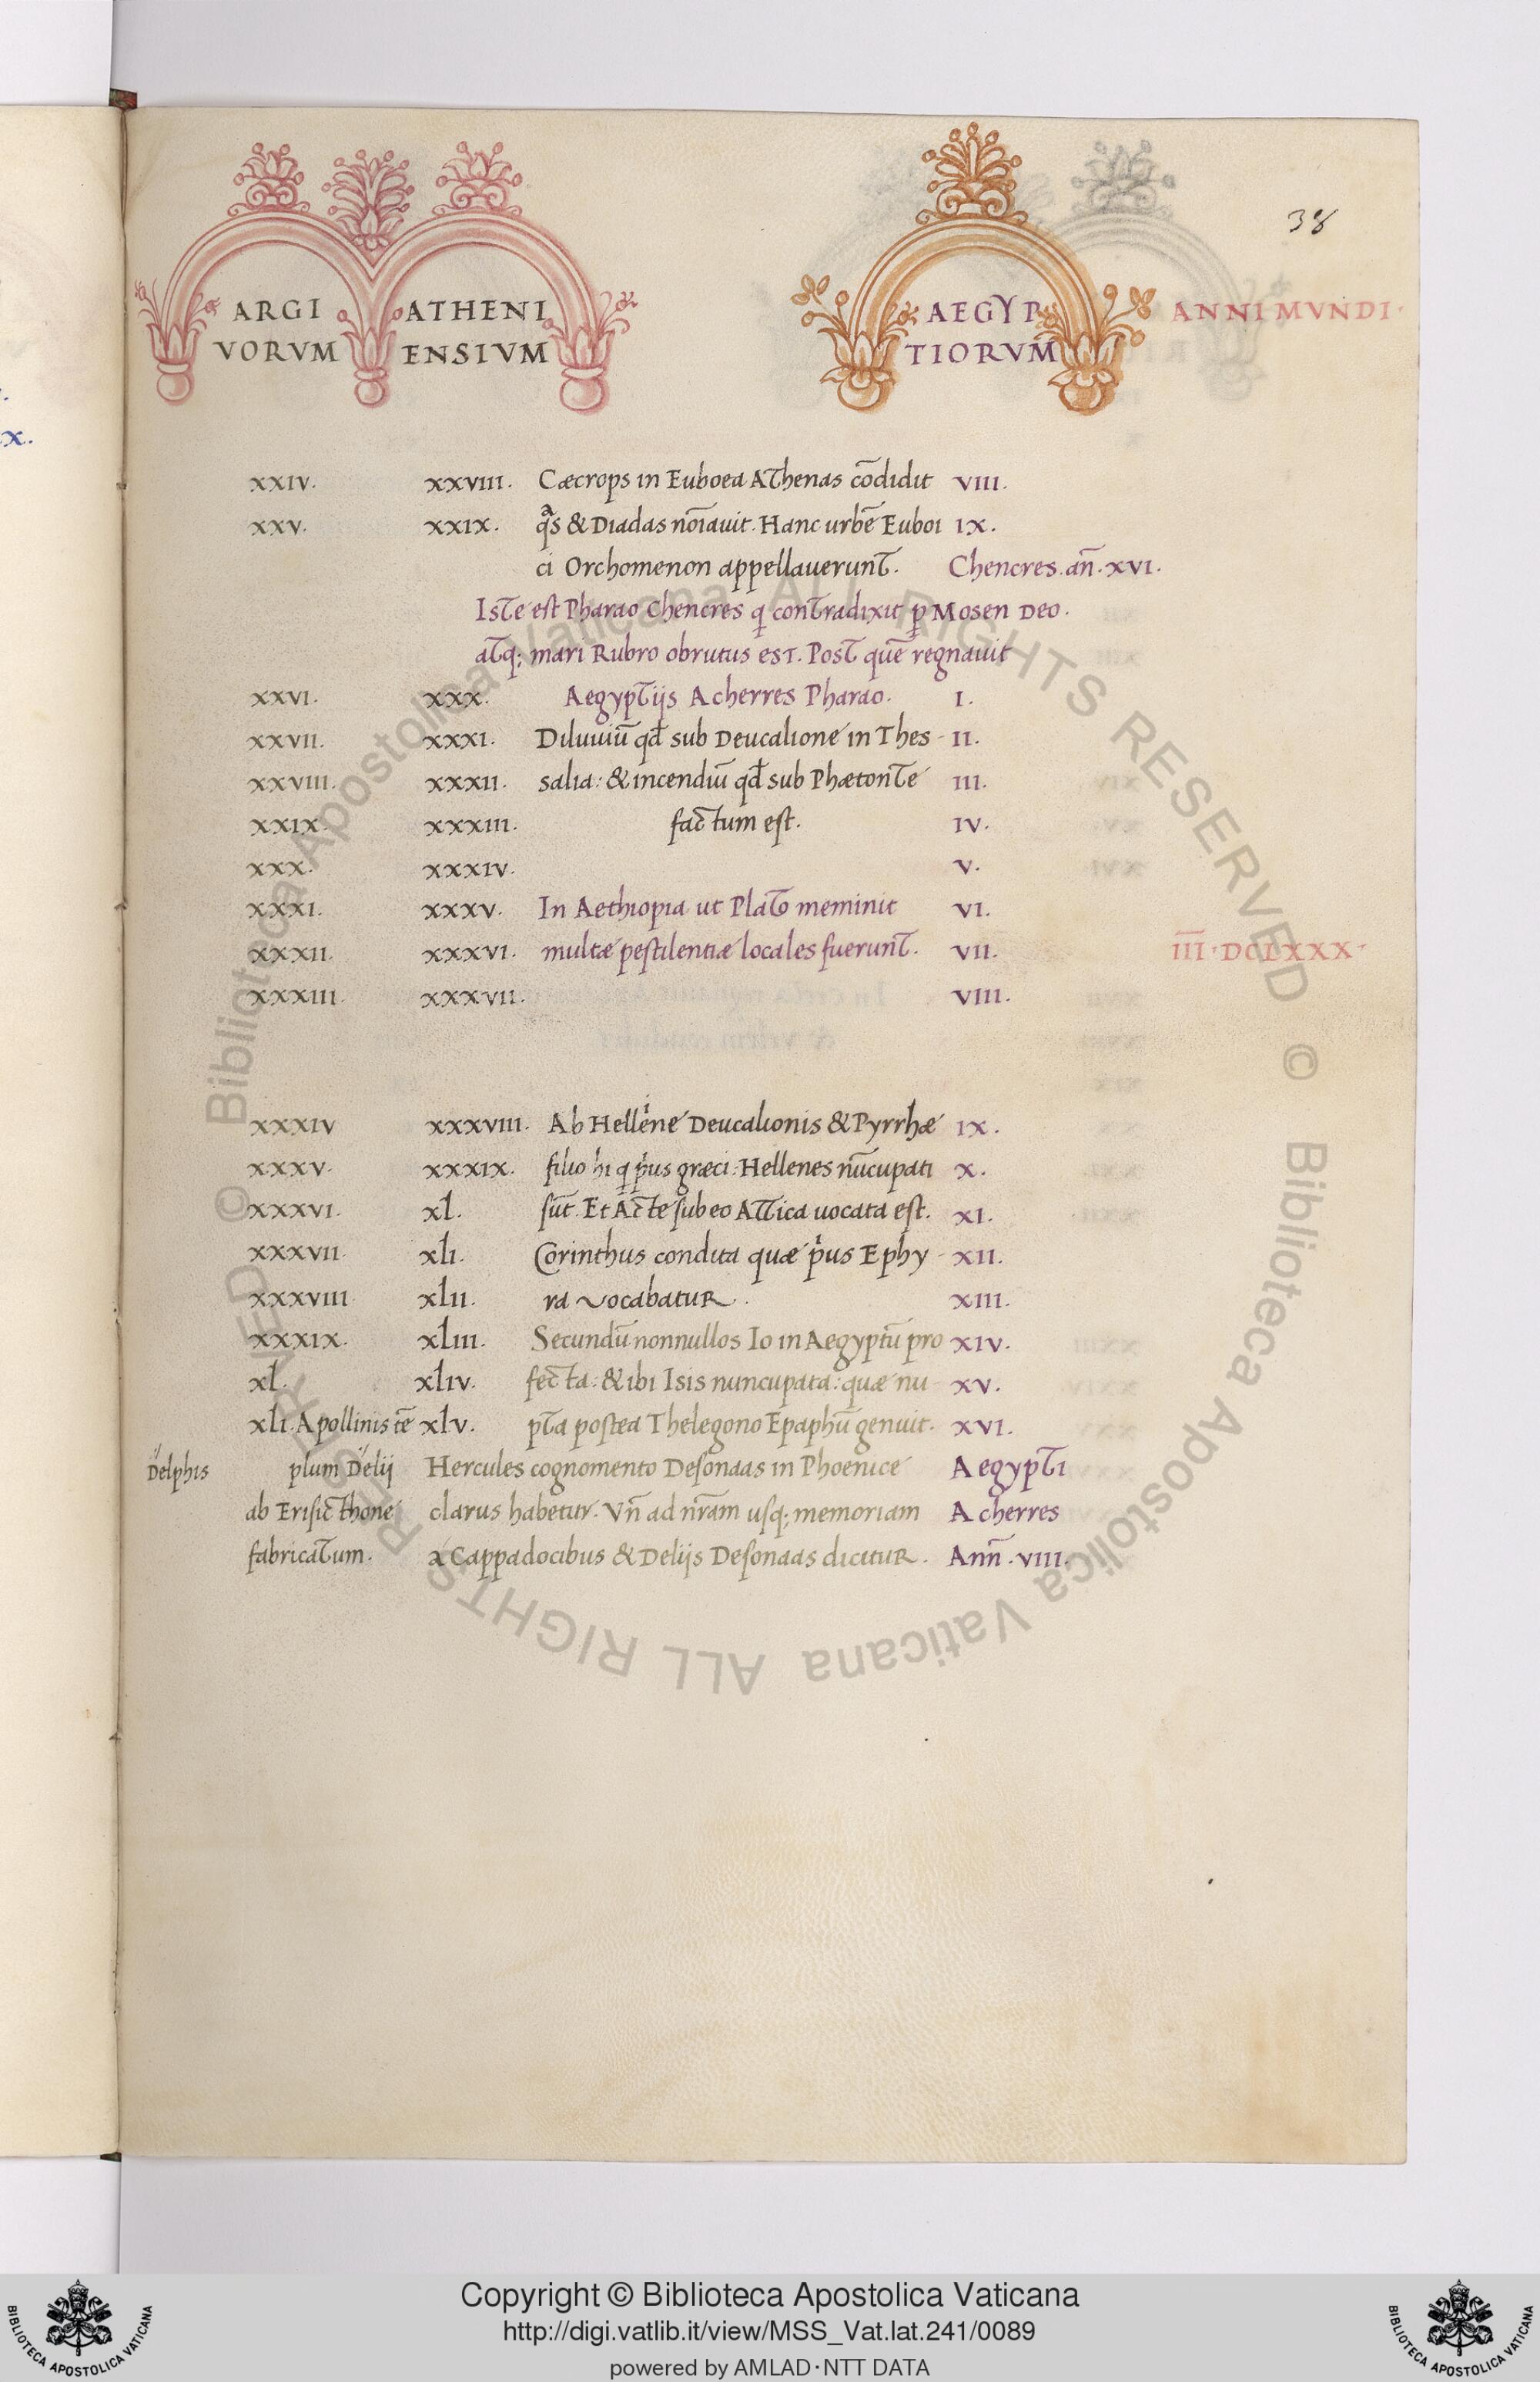 38
ARGI ATHENI AEGYP ANNI MVNDI·
VORVM ENSIVM TIORVM
XXIV. XXVIII. Cæcrops in Euboea Athenas cōdidit VIII.
XXV. XXIX. q̄s & Diadas noīauit. Hanc urbē Euboi IX.
ci Orchomenon appellauerunt. Chencres. an̄. XVI.
Iste est Pharao Chencres q contradixit p Mosen Deo.
atq; mari Rubro obrutus est. Post quē regnauit
XXVI. XXX. Aegyptijs Acherres Pharao. I.
XXVII. XXXI. Diluuiū qđ sub Deucalione in Thes- II.
XXVIII. XXXII. salia: & incendiū qđ sub Phætonte III.
XXIX. XXXIII. factum est. IV.
XXX. XXXIV. V.
XXXI. XXXV. In Aethiopia ut Plato meminit VI.
XXXII. XXXVI. multæ pestilentiæ locales fuerunt. VII. I̅I̅I̅·DCLXXX·
XXXIII. XXXVII. VIII.
XXXIV XXXVIII. Ab Hellene Deucalionis & Pyrrhæ IX.
XXXV. XXXIX. filio hi q pus græci: Hellenes nūcupati X.
XXXVI. xl. sūt. Et Acte sub eo Attica uocata est. XI.
XXXVII. xli. Corinthus condita quæ pus Ephy- XII.
XXXVIII xlii. ra vocabatur. XIII.
XXXIX. xliii. Secundū nonnullos Io in Aegyptū pro XIV.
xl. xliv. fecta: & ibi Isis nuncupata: quæ nu- XV.
xli. Apollinis tē xlv. pta postea Thelegono Epaphū genuit. XVI.
Delphis plum Delij Hercules cognomento Desonaas in Phoenice Aegypti
ab Erisicthone clarus habetur. Vn̄ ad nr̄am usq; memoriam Acherres
fabricatum. a Cappadocibus & Delijs Desonaas dicitur. Ann̄. VIII.
x.
© Biblioteca Apostolica Vaticana ALL RIGHTS RESERVED © Biblioteca Apostolica Vaticana ALL RIGHTS RESERVED
Copyright © Biblioteca Apostolica Vaticana
http://digi.vatlib.it/view/MSS_Vat.lat.241/0089
powered by AMLAD·NTT DATA
BIBLIOTECA APOSTOLICA VATICANA
BIBLIOTECA APOSTOLICA VATICANA